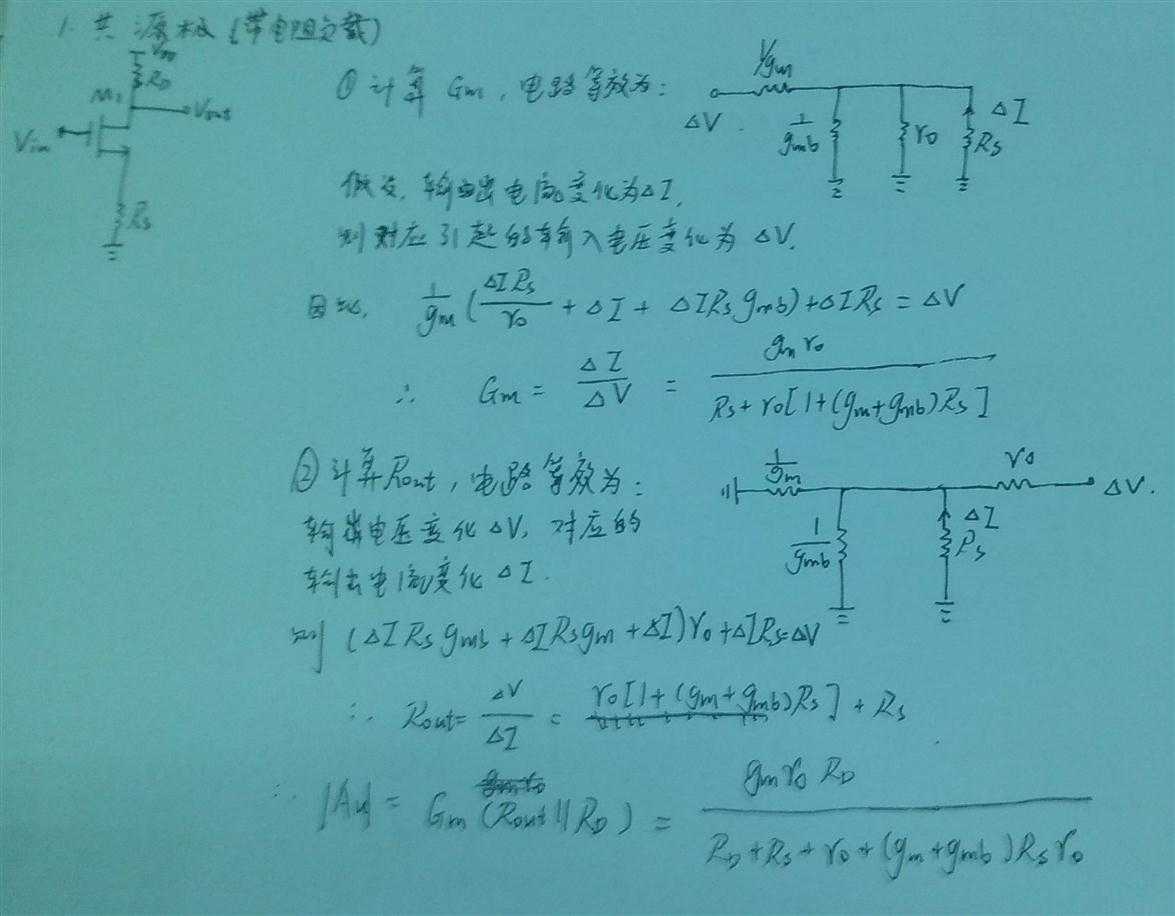 1. 共源极 (带电阻负载)
VDD
RD
M1
Vout
Vin
RS
① 计算 Gm, 电路等效为:
1/gm
ΔV
1/gmb
r0
ΔI
RS
假设, 输出电流变化为ΔI,
则对应引起的输入电压变化为 ΔV.
因此, 1/gm (ΔIRS/r0 + ΔI + ΔIRS gmb) + ΔIRS = ΔV
∴ Gm = ΔI/ΔV = gm r0 / RS + r0[1+(gm+gmb)RS]
② 计算Rout, 电路等效为:
1/gm
r0
ΔV.
1/gmb
ΔI
RS
输出电压变化ΔV, 对应的
输出电流变化 ΔI.
则 (ΔIRS gmb + ΔIRS gm + ΔI) r0 + ΔIRS = ΔV
∴ Rout = ΔV/ΔI = r0[1+(gm+gmb)RS] + RS
∴ |Au| = Gm (Rout || RD) = gm r0 RD / RD + RS + r0 + (gm+gmb) RS r0